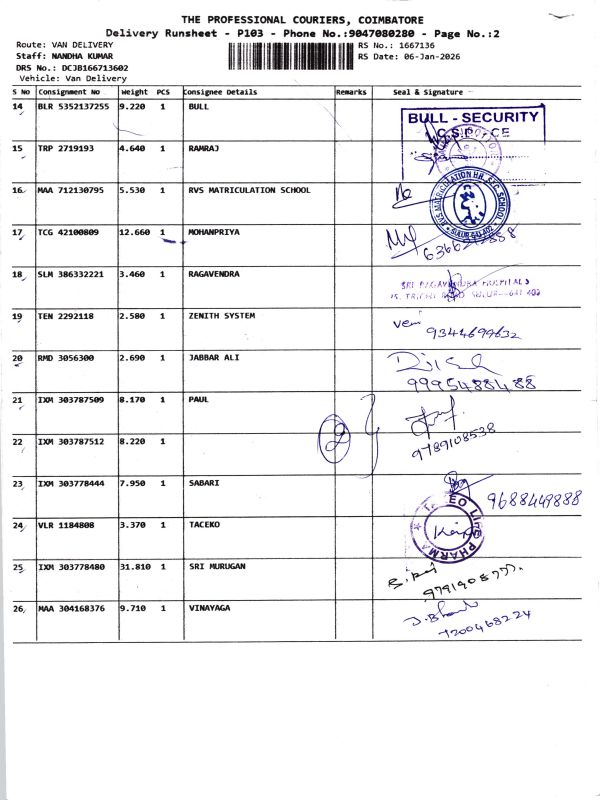 THE PROFESSIONAL COURIERS, COIMBATORE
Delivery Runsheet - P103 - Phone No.:9047080280 - Page No.:2
Route: VAN DELIVERY
Staff: NANDHA KUMAR
DRS No.: DCJB166713602
Vehicle: Van Delivery
RS No.: 1667136
RS Date: 06-Jan-2026
S No Consignment No Weight PCS Consignee Details Remarks Seal & Signature
14 BLR 5352137255 9.220 1 BULL
BULL - SECURITY
15 TRP 2719193 4.640 1 RAMRAJ
16 MAA 712130795 5.530 1 RVS MATRICULATION SCHOOL
RVS MATRICULATION HR. SEC. SCHOOL
17 TCG 42100809 12.660 1 MOHANPRIYA
18 SLM 386332221 3.460 1 RAGAVENDRA
SRI RAGAVENDRA HOSPITALS
19 TEN 2292118 2.580 1 ZENITH SYSTEM
9344699632
20 RMD 3056300 2.690 1 JABBAR ALI
9995488488
21 IXM 303787509 8.170 1 PAUL
9789108538
22 IXM 303787512 8.220 1
2
23 IXM 303778444 7.950 1 SABARI
9688449888
24 VLR 1184808 3.370 1 TACEKO
PHARMA
25 IXM 303778480 31.810 1 SRI MURUGAN
26 MAA 304168376 9.710 1 VINAYAGA
7200468224